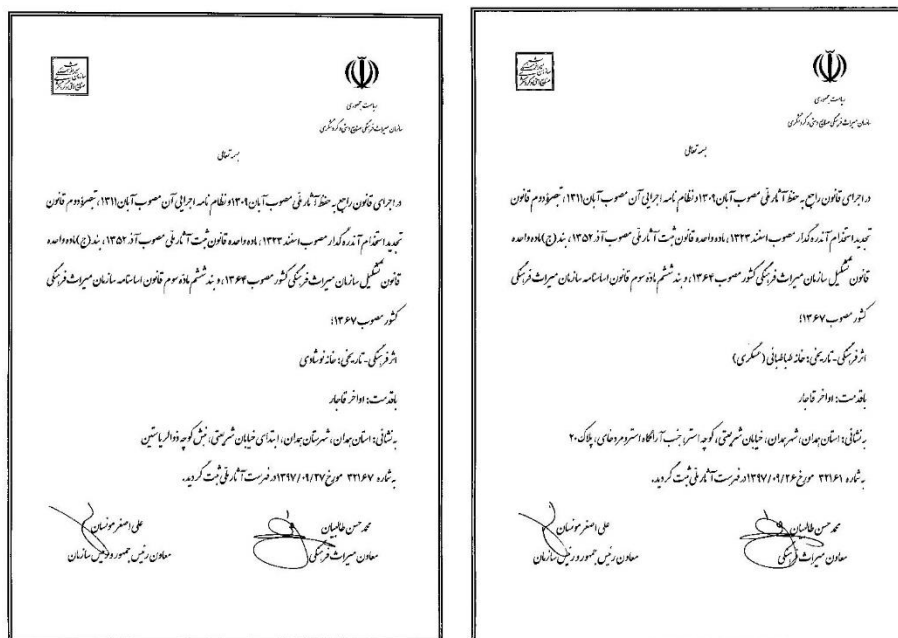 ریاست جمهوری
سازمان میراث فرهنگی صنایع دستی و گردشگری
بسمه تعالی
در اجرای قانون راجع به حفظ آثار ملی مصوب آبان ۱۳۰۹ و نظام نامه اجرایی آن مصوب آبان ۱۳۱۱، تبصره دوم قانون
تجدید استخدام آندره گدار مصوب اسفند ۱۳۲۳، ماده واحده قانون ثبت آثار ملی مصوب آذر ۱۳۵۲، بند (ج) ماده واحده
قانون تشکیل سازمان میراث فرهنگی کشور مصوب ۱۳۶۴، و بند ششم ماده سوم قانون اساسنامه سازمان میراث فرهنگی
کشور مصوب ۱۳۶۷؛
اثر فرهنگی - تاریخی: خانه نوشادی
با قدمت: اواخر قاجار
به نشانی: استان همدان، شهرستان همدان، ابتدای خیابان شریعتی، نبش کوچه ذوالریاستین
به شماره ۳۲۱۶۷ مورخ ۱۳۹۷/۰۹/۲۷ در فهرست آثار ملی ثبت گردید.
محمد حسن طالبیان
معاون میراث فرهنگی
علی اصغر مونسان
معاون رئیس جمهور و رئیس سازمان
ریاست جمهوری
سازمان میراث فرهنگی صنایع دستی و گردشگری
بسمه تعالی
در اجرای قانون راجع به حفظ آثار ملی مصوب آبان ۱۳۰۹ و نظام نامه اجرایی آن مصوب آبان ۱۳۱۱، تبصره دوم قانون
تجدید استخدام آندره گدار مصوب اسفند ۱۳۲۳، ماده واحده قانون ثبت آثار ملی مصوب آذر ۱۳۵۲، بند (ج) ماده واحده
قانون تشکیل سازمان میراث فرهنگی کشور مصوب ۱۳۶۴، و بند ششم ماده سوم قانون اساسنامه سازمان میراث فرهنگی
کشور مصوب ۱۳۶۷؛
اثر فرهنگی - تاریخی: خانه طباطبائی (عسکری)
با قدمت: اواخر قاجار
به نشانی: استان همدان، شهر همدان، خیابان شریعتی، کوچه استر، جنب آرامگاه استر و مردخای، پلاک ۲۰
به شماره ۳۲۱۶۱ مورخ ۱۳۹۷/۰۹/۲۶ در فهرست آثار ملی ثبت گردید.
محمد حسن طالبیان
معاون میراث فرهنگی
علی اصغر مونسان
معاون رئیس جمهور و رئیس سازمان